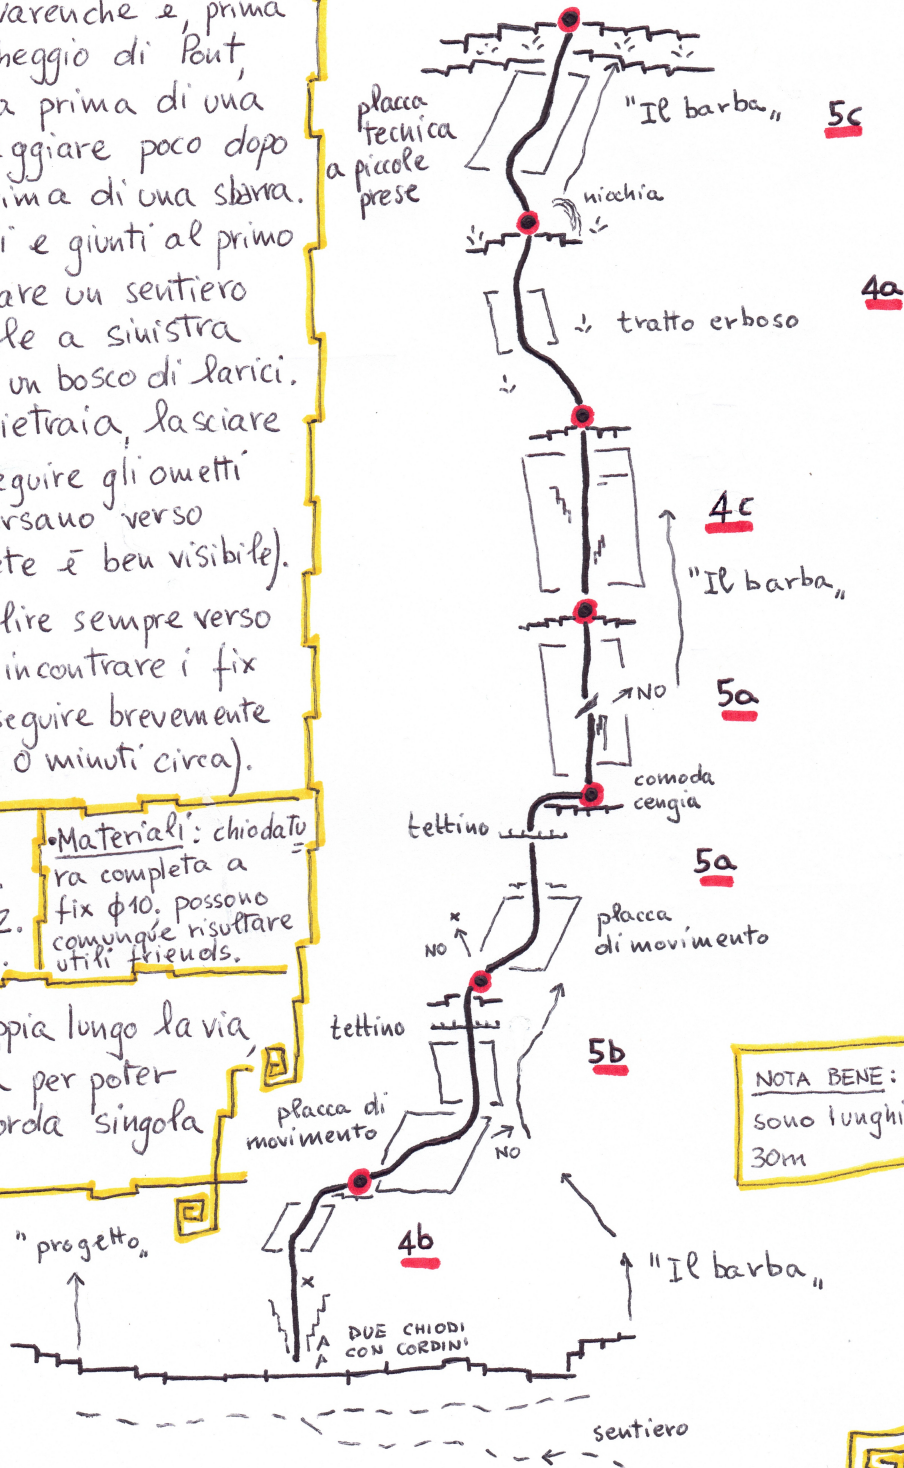 varenche e, prima
heggio di Pont,
a prima di una
ggiare poco dopo
ima di una sbarra.
i e giunti al primo
are un sentiero
le a sinistra
un bosco di larici.
ietraia, lasciare
eguire gli ometti
rsano verso
te è ben visibile).
lire sempre verso
incontrare i fix
seguire brevemente
0 minuti circa).
•Materiali: chiodatu
ra completa a
fix ϕ10. possono
comunque risultare
utili friends.
2.
ppia lungo la via,
per poter
orda singola
placca
tecnica
a piccole
prese
"Il barba„
5c
nicchia
4a
tratto erboso
4c
"Il barba„
NO
5a
comoda
cengia
tettino
5a
placca
di movimento
x
NO
tettino
5b
placca di
movimento
NO
NOTA BENE:
sono lunghi
30m
4b
"progetto„
x
"Il barba„
DUE CHIODI
CON CORDINI
sentiero